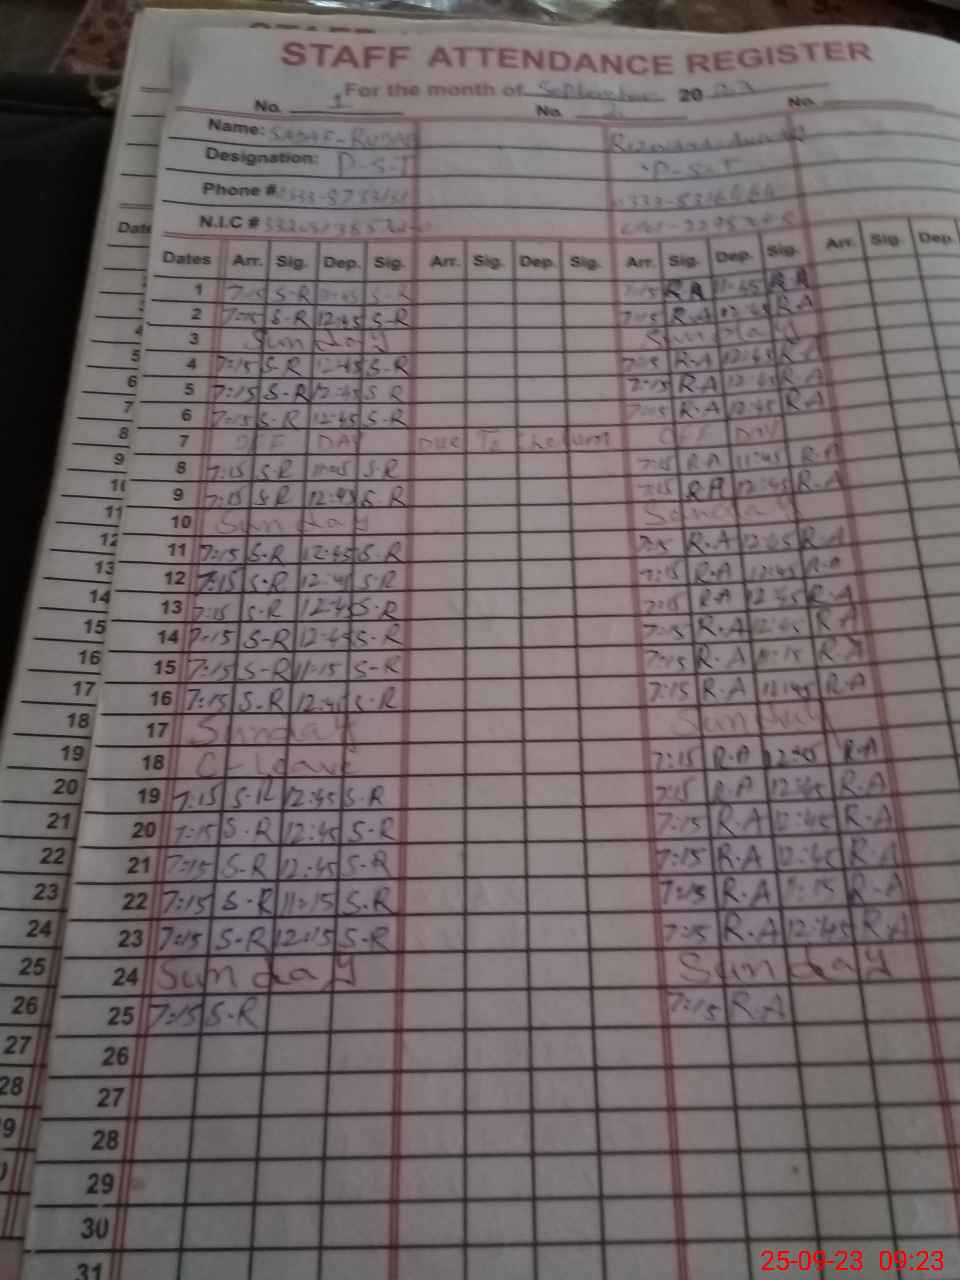 STAFF ATTENDANCE REGISTER
For the month of September 20
No. 1 No. 2 No.
Name: SADAF-
Designation: P-S-T P-S-T
Phone #
N.I.C #
Dates Arr. Sig. Dep. Sig. Arr. Sig. Dep. Sig. Arr. Sig. Dep. Sig. Arr. Sig. Dep.
1 7:15 S-R 11:45 S-R 7:15 R.A 11:45 R.A
2 7:15 S-R 12:45 S-R 7:15 R.A 12:45 R.A
3 Sunday Sunday
4 7:15 S-R 12:45 S-R 7:15 R.A 12:45 R.A
5 7:15 S-R 12:45 S-R 7:15 R.A 12:45 R.A
6 7:15 S-R 12:45 S-R 7:15 R.A 12:45 R.A
7 OFF DAY Due To Chehlum OFF DAY
8 7:15 S-R 11:45 S-R 7:15 R.A 11:45 R.A
9 7:15 S-R 12:45 S-R 7:15 R.A 12:45 R.A
10 Sunday Sunday
11 7:15 S-R 12:45 S-R 7:15 R.A 12:45 R.A
12 7:15 S-R 12:45 S-R 7:15 R.A 12:45 R.A
13 7:15 S-R 12:45 S-R 7:15 R.A 12:45 R.A
14 7:15 S-R 12:45 S-R 7:15 R.A 12:45 R.A
15 7:15 S-R 11:15 S-R 7:15 R.A 11:15 R.A
16 7:15 S-R 12:45 S-R 7:15 R.A 12:45 R.A
17 Sunday Sunday
18 C-Leave 7:15 R.A 12:45 R.A
19 7:15 S-R 12:45 S-R 7:15 R.A 12:45 R.A
20 7:15 S-R 12:45 S-R 7:15 R.A 12:45 R.A
21 7:15 S-R 12:45 S-R 7:15 R.A 12:45 R.A
22 7:15 S-R 11:15 S-R 7:15 R.A 11:15 R.A
23 7:15 S-R 12:15 S-R 7:15 R.A 12:45 R.A
24 Sunday Sunday
25 7:15 S-R 7:15 R.A
26
27
28
29
30
31
25-09-23 09:23